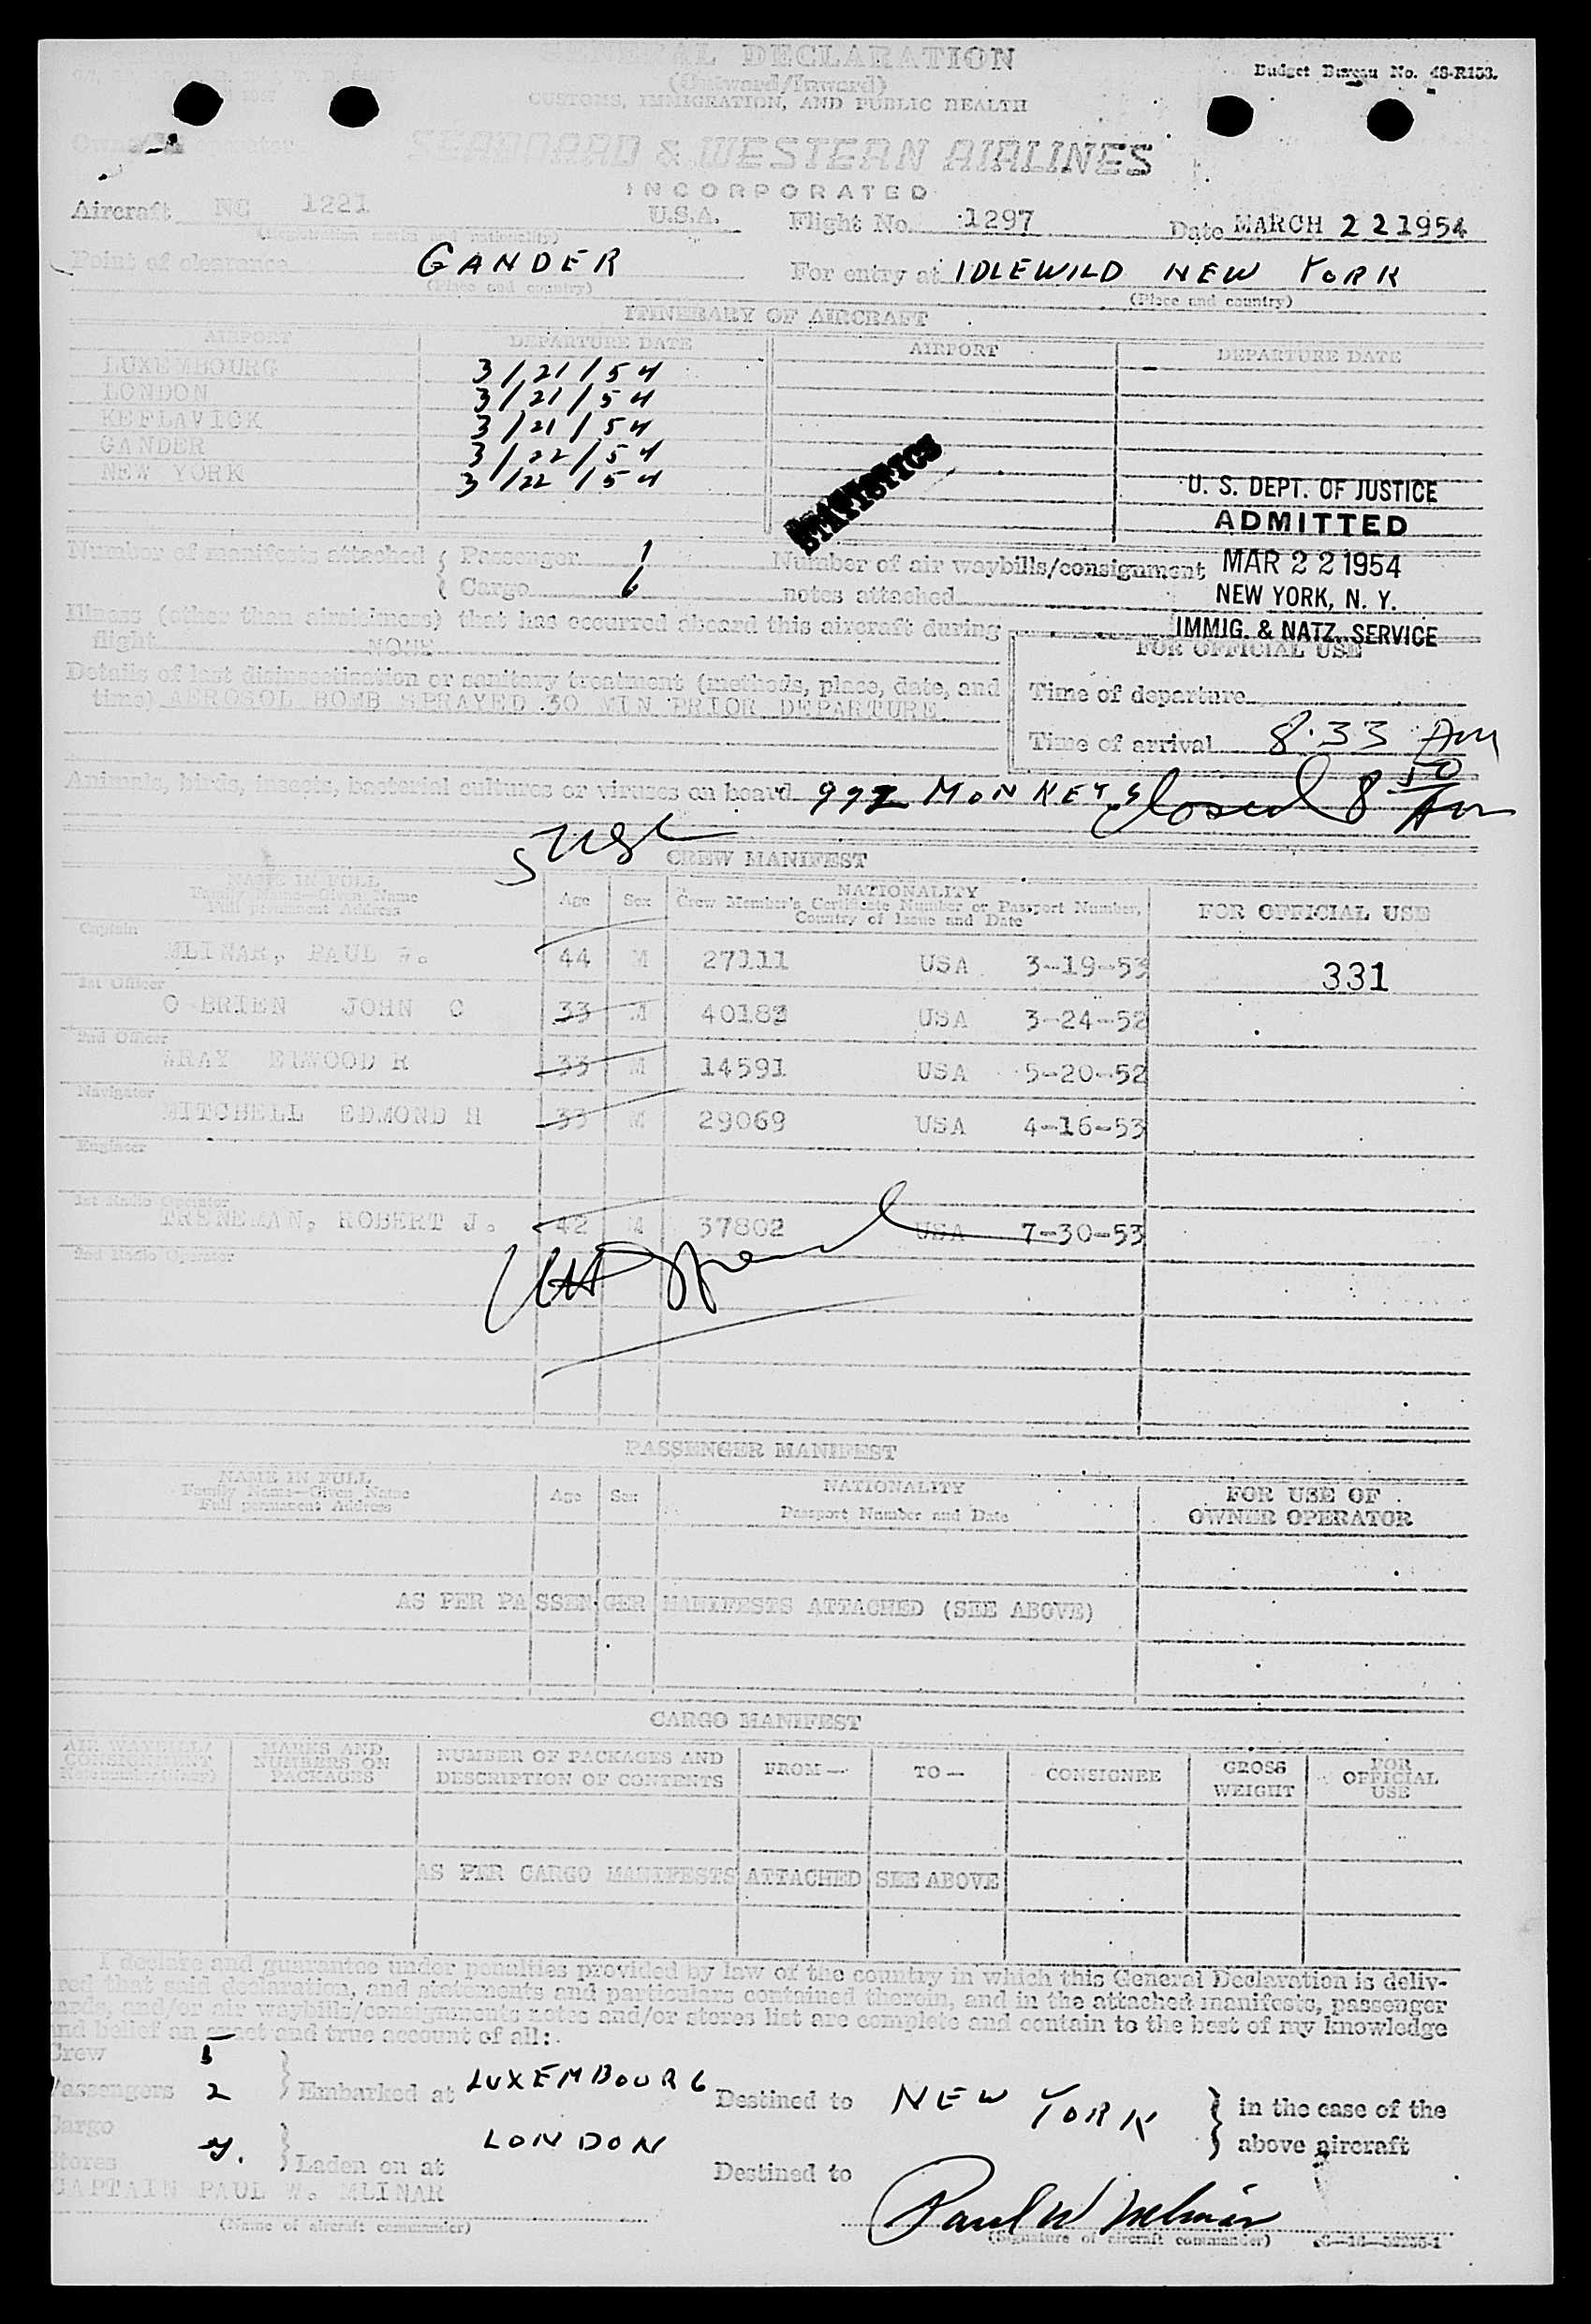 GENERAL DECLARATION
(Outward/Inward)
CUSTOMS, IMMIGRATION, AND PUBLIC HEALTH
Budget Bureau No. 48-R183.
SEABOARD & WESTERN AIRLINES
INCORPORATED
Aircraft NC 1221 U.S.A. Flight No. 1297 Date MARCH 22 1954
(Registration marks and nationality)
Point of clearance GANDER For entry at IDLEWILD NEW YORK
(Place and country) (Place and country)
ITINERARY OF AIRCRAFT
AIRPORT DEPARTURE DATE AIRPORT DEPARTURE DATE
LUXEMBOURG 3/21/54
LONDON 3/21/54
KEFLAVICK 3/21/54
GANDER 3/22/54
NEW YORK 3/22/54
STATISTICS
U. S. DEPT. OF JUSTICE
ADMITTED
MAR 22 1954
NEW YORK, N. Y.
IMMIG. & NATZ. SERVICE
Number of manifests attached { Passenger 1 Number of air waybills/consignment
{ Cargo 6 notes attached
Illness (other than airsickness) that has occurred aboard this aircraft during
flight NONE
FOR OFFICIAL USE
Details of last disinsectization or sanitary treatment (methods, place, date, and
time) AEROSOL BOMB SPRAYED 30 MIN PRIOR DEPARTURE
Time of departure
Time of arrival 8:33 AM
Animals, birds, insects, bacterial cultures or viruses on board 992 MONKEYS Closed 8 50 AM
CREW MANIFEST
NAME IN FULL
Family Name—Given Name
Full permanent Address
Age Sex
NATIONALITY
Crew Member's Certificate Number or Passport Number,
Country of Issue and Date
FOR OFFICIAL USE
Captain
MLINAR, PAUL W. 44 M 27111 USA 3-19-53 331
1st Officer
O BRIEN JOHN C 33 M 40183 USA 3-24-52
2nd Officer
WRAY ELWOOD R 33 M 14591 USA 5-20-52
Navigator
MITCHELL EDMOND H 33 M 29069 USA 4-16-53
Engineer
1st Radio Operator
TRENEMAN, ROBERT J. 42 M 37802 USA 7-30-53
2nd Radio Operator
PASSENGER MANIFEST
NAME IN FULL
Family Name—Given Name
Full permanent Address
Age Sex
NATIONALITY
Passport Number and Date
FOR USE OF
OWNER OPERATOR
AS PER PASSENGER MANIFESTS ATTACHED (SEE ABOVE)
CARGO MANIFEST
AIR WAYBILL/
CONSIGNMENT
MARKS AND
NUMBERS ON
PACKAGES
NUMBER OF PACKAGES AND
DESCRIPTION OF CONTENTS
FROM— TO— CONSIGNEE
GROSS
WEIGHT
FOR
OFFICIAL
USE
AS PER CARGO MANIFESTS ATTACHED SEE ABOVE
I declare and guarantee under penalties provided by law of the country in which this General Declaration is deliv-
red that said declaration, and statements and particulars contained therein, and in the attached manifests, passenger
ards, and/or air waybills/consignments notes and/or stores list are complete and contain to the best of my knowledge
nd belief an exact and true account of all:
Crew 5
Passengers 2 } Embarked at LUXEMBOURG Destined to NEW YORK } in the case of the
Cargo LONDON above aircraft
Stores } Laden on at Destined to
CAPTAIN PAUL W. MLINAR Paul W Mlinar
(Name of aircraft commander) (Signature of aircraft commander)